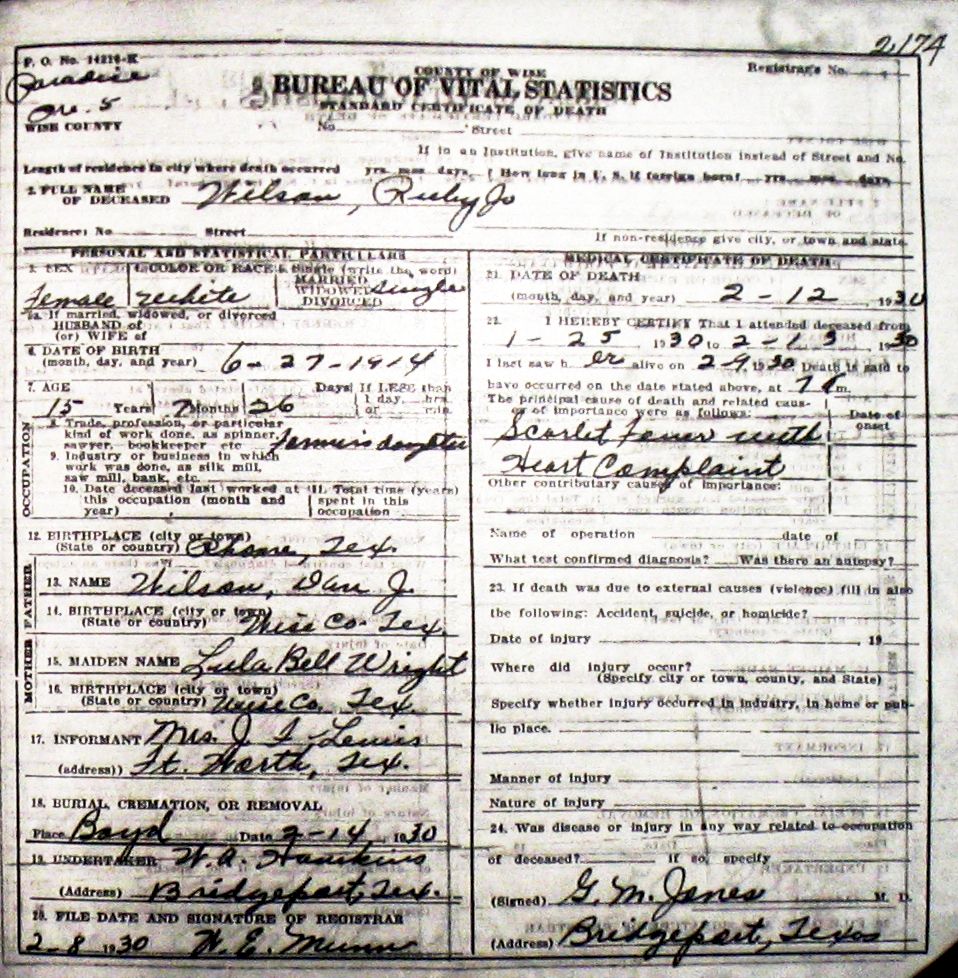 2174
P. O. No. 14224-K
COUNTY OF WISE
Registrar's No.
Paradise
BUREAU OF VITAL STATISTICS
Pre. 5
STANDARD CERTIFICATE OF DEATH
WISE COUNTY
No. Street
If in an Institution, give name of Institution instead of Street and No.
Length of residence in city where death occurred yrs. mos. days. How long in U. S. if foreign born? yrs. mos. days
2. FULL NAME OF DECEASED Wilson, Ruby Jo
Residence: No Street
If non-residence give city, or town and state.
PERSONAL AND STATISTICAL PARTICULARS
3. SEX Female
4. COLOR OR RACE White
5. Single (write the word) MARRIED WIDOWED DIVORCED Single
5a. If married, widowed, or divorced
HUSBAND of
(or) WIFE of
6. DATE OF BIRTH
(month, day, and year) 6-27-1914
7. AGE
15 Years 7 Months 26 Days If LESS than 1 day, hrs. or min.
OCCUPATION
8. Trade, profession, or particular
kind of work done, as spinner, Farmer's daughter
sawyer, bookkeeper etc
9. Industry or business in which
work was done, as silk mill,
saw mill, bank, etc.
10. Date deceased last worked at
this occupation (month and
year)
11. Total time (years)
spent in this
occupation
12. BIRTHPLACE (city or town)
(State or country) Rhome, Tex.
FATHER
13. NAME Wilson, Dan J.
14. BIRTHPLACE (city or town)
(State or country) Wise Co. Tex.
MOTHER
15. MAIDEN NAME Lula Bell Wright
16. BIRTHPLACE (city or town)
(State or country) Wise Co, Tex.
17. INFORMANT Mrs. J. Lewis
(address)) Ft. Worth, Tex.
18. BURIAL, CREMATION, OR REMOVAL
Place Boyd Date 2-14, 1930
19. UNDERTAKER W. A. Hawkins
(Address) Bridgeport, Tex.
20. FILE DATE AND SIGNATURE OF REGISTRAR
2-8 1930 W. E.
MEDICAL CERTIFICATE OF DEATH
21. DATE OF DEATH
(month, day, and year) 2-12, 1930
22. I HEREBY CERTIFY That I attended deceased from
1-25 1930 to 2-13, 1930
I last saw her alive on 2-9, 1930 Death is said to
have occurred on the date stated above, at 7 m.
The principal cause of death and related causes of importance were as follows:
Date of onset
Scarlet Fever with
Heart Complaint
Other contributary causes of importance:
Name of operation date of
What test confirmed diagnosis? Was there an autopsy?
23. If death was due to external causes (violence) fill in also
the following: Accident, suicide, or homicide?
Date of injury 19
Where did injury occur?
(Specify city or town, county, and State)
Specify whether injury occurred in industry, in home or pub-
lic place.
Manner of injury
Nature of injury
24. Was disease or injury in any way related to occupation
of deceased? if so, specify
(Signed) G. M. Jones M. D.
(Address) Bridgeport, Texas